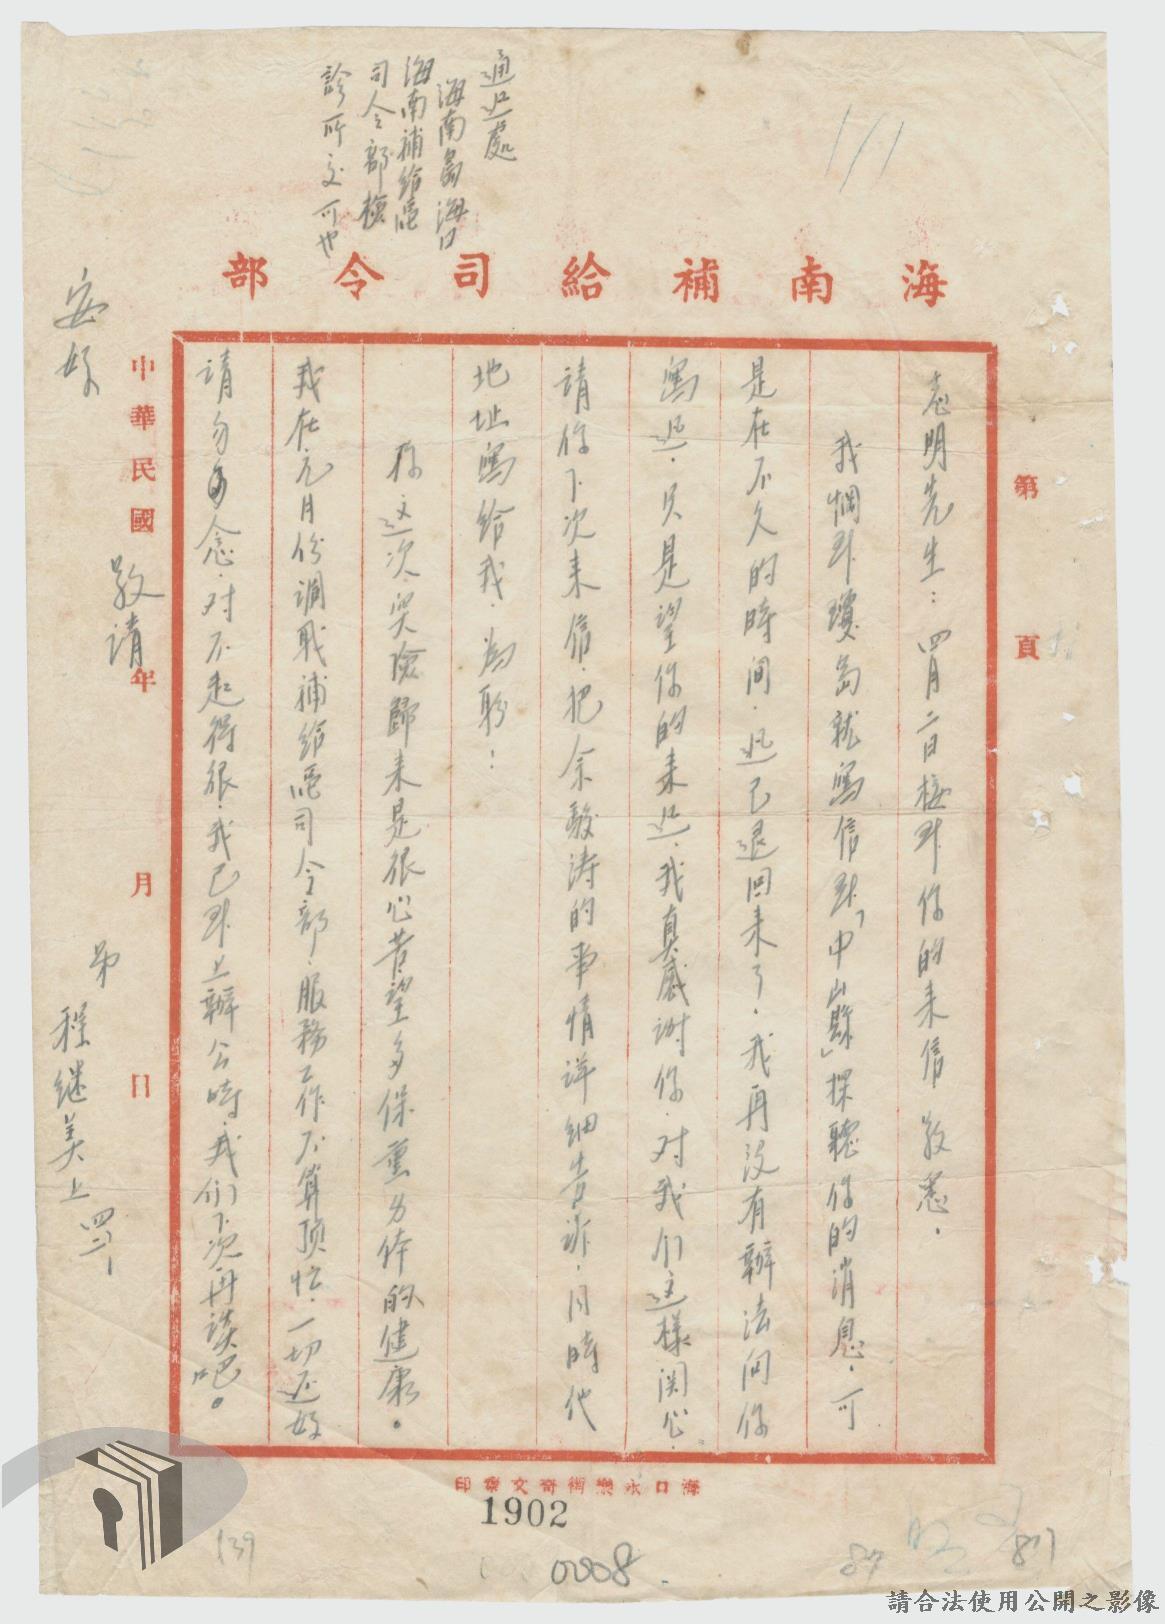 通迅處
海南島海口
海南補給區
司令部檢
診所交可也
海南補給司令部
第 頁
志明先生：四月二日接到你的来信敬悉．
我惆到瓊島就寫信到「中山縣」探聽你的消息．可
是在不久的時间．迅已退回来了．我再没有辦法问你
寫迅．只是望你的来迅．我真感谢你．对我们这樣関心．
請你下次来信．把余毅涛的事情详细告诉．同時他
地址寫给我．為盼：
你这次突險歸来是很心苦望多保重身体的健康。
我在元月份调職補给區司令部．服務工作不算頂忙．一切还好
请勿多念．对不起得很．我已到上辦公時．我们下次再谈吧。
敬请
安好
弟 程继美上 四．二．
中華民國 年 月 日
海口永樂街奇文齋印
1902
0008
139
87
87
請合法使用公開之影像